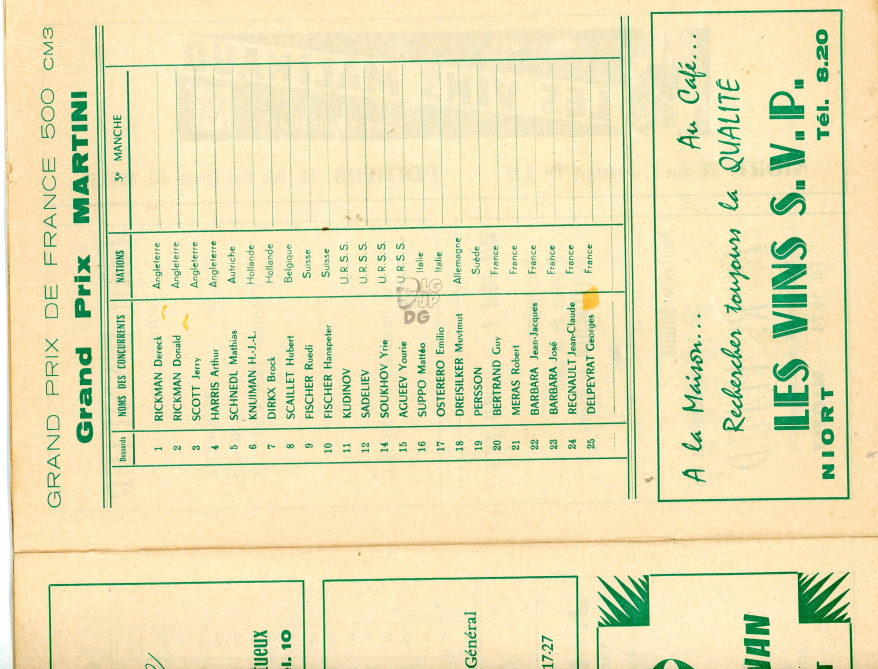 GRAND PRIX DE FRANCE 500 CM3
Grand Prix MARTINI
Dossards NOMS DES CONCURRENTS NATIONS 3e MANCHE
1 RICKMAN Dereck Angleterre
2 RICKMAN Donald Angleterre
3 SCOTT Jerry Angleterre
4 HARRIS Arthur Angleterre
5 SCHNEDL Mathias Autriche
6 KNUIMAN H.-J.-L. Hollande
7 DIRKX Brock Hollande
8 SCAILLET Hubert Belgique
9 FISCHER Ruedi Suisse
10 FISCHER Hanspeter Suisse
11 KUDINOV U.R.S.S.
12 SADELIEV U.R.S.S.
14 SOUKHOV Yrie U.R.S.S.
15 AGUEEV Yourie U.R.S.S.
16 SUPPO Mattéo Italie
17 OSTERERO Emilio Italie
18 DREISILKER Muvtmut Allemagne
19 PERSSON Suède
20 BERTRAND Guy France
21 MERAS Robert France
22 BARBARA Jean-Jacques France
23 BARBARA José France
24 REGNAULT Jean-Claude France
25 DELPEYRAT Georges France
LG
JP
DG
A la Maison... Au Café...
Rechercher toujours la QUALITÉ
LES VINS S.V.P.
NIORT Tél. 8.20
Général
17-27